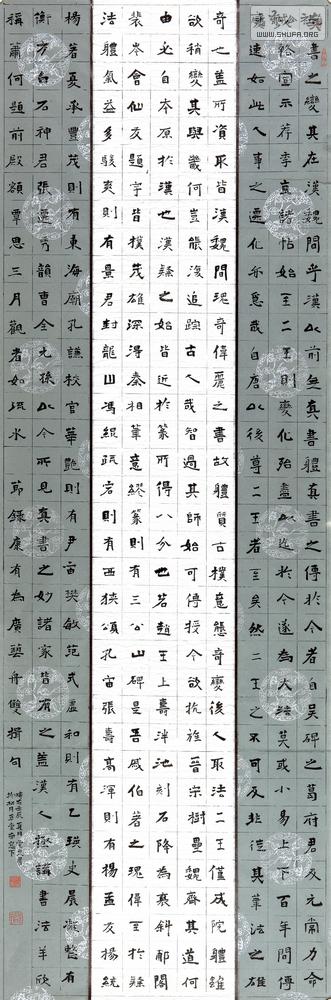 WWW.SHUFA.ORG
書之變其在漢魏間乎漢以前無真書體真書之傳於今者自吳碑之葛府君及元常力命
宣示荐季直諸帖始至二王則變化殆盡以迄於今遂為大法莫或小易上下百年間傳
速如此人事之遷化亦急哉自唐以後尊二王者至矣然二王之不可及非徒其筆法之雄
奇也蓋所資取皆漢魏間瑰奇偉麗之書故體質古樸意態奇變後人取法二王僅成院體雖
欲稍變其與幾何豈能復追踪古人哉智過其師始可傳授今欲抗旌晉宋樹壘魏齊其道何
由必自本原於漢也漢隸之始皆近於篆所得八分也若趙王上壽泮池刻石降為褒斜郙閣
裴岑會仙友題字皆樸茂雄深得秦相筆意繆篆則有三公山碑是吾戚伯著之瑰偉至於隸
法體氣益多駿爽則有景君封龍山馮緄疏宕則有西狹頌孔宙張壽高渾則有楊孟文楊統
楊著夏承豐茂則有東海廟孔謙校官華艷則有尹宙樊敏范式虛和則有乙瑛史晨凝整有
衡方白石神君張遷秀韻曹全元孫以今所見真書之妙諸家皆有之蓋漢人極講書法羊欣
稱蕭何題前殿額覃思三月觀者如流水 節錄康有為廣藝舟雙楫句